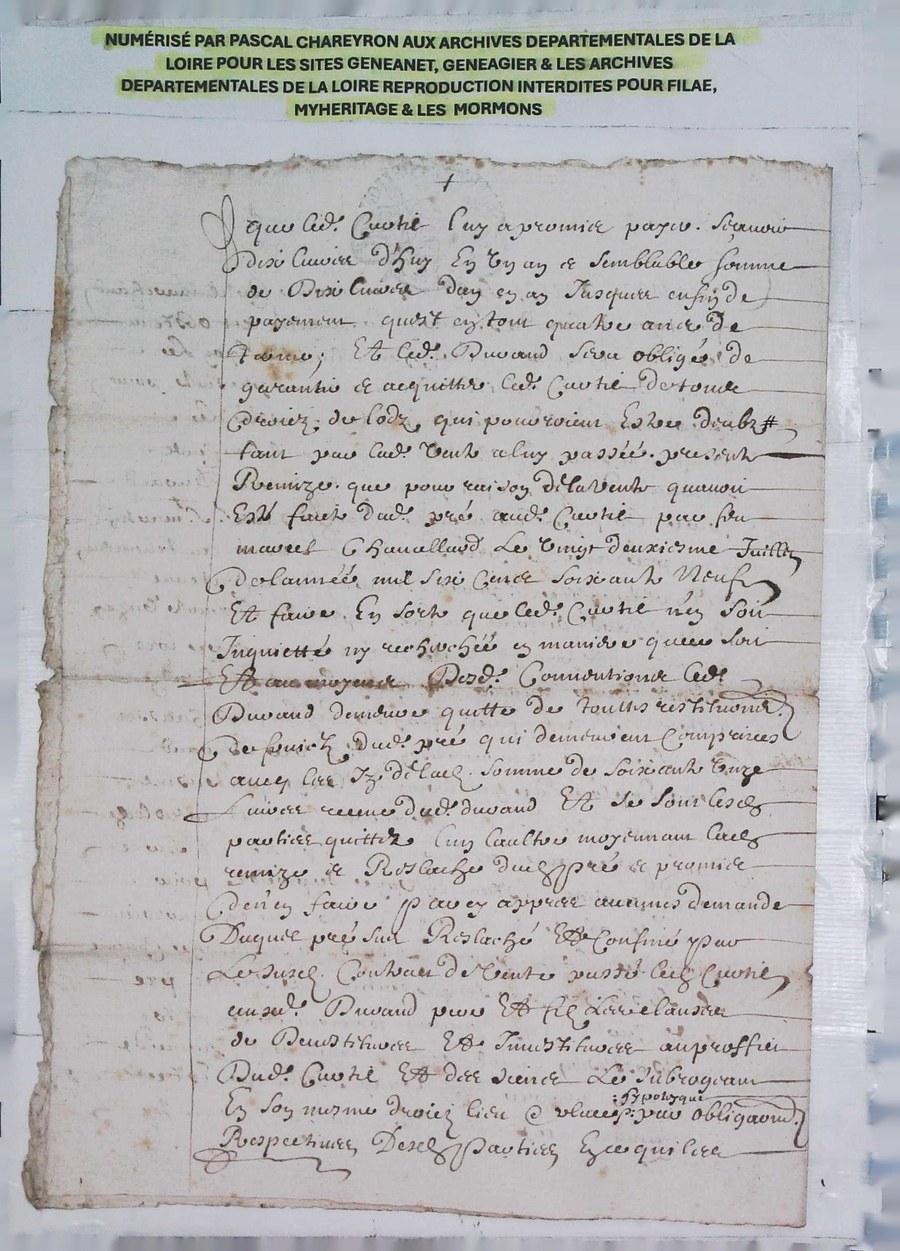 NUMÉRISÉ PAR PASCAL CHAREYRON AUX ARCHIVES DEPARTEMENTALES DE LA
LOIRE POUR LES SITES GENEANET, GENEAGIER & LES ARCHIVES
DEPARTEMENTALES DE LA LOIRE REPRODUCTION INTERDITES POUR FILAE,
MYHERITAGE & LES MORMONS
que led. Curtil luy a promis payer. Scavoir
dix livres d'huy En un an & semblable somme
de Dix livres d'an en an Jusques enfin de
payement quest en tout quatre ans de
terme; Et led. Durand sera obligé de
garantir & acquitter led. Curtil de tous
droictz de lodz qui pourroient Estre deubz #
tant par lad. vente a luy passée. presente
Remize. que pour raison de la vente quavoit
Esté faict dud. pré aud. Curtil par feu
marcel Chavallard Le vingt deuxiesme Juillet
de lannéé mil six cens soixante Neuf
Et faire En sorte que led. Curtil n'en soit
Inquietté ny recherché en maniere que soit
Et au moyens Desd. Conventions led.
Durand demeure quitte de touttes restitutions
de fruictz dud. pré qui demeurent Comprises
avec les de lad. somme de soixante unze
livres receue dud. durand Et se sont lesd.
parties quittez Lun Laultre moyennant lad.
remize & Reslache dud. pré & promis
de n'en faire par cy appres aucunes demande
Duquel pré sus Reslaché Et Confiné par
Le susd. Contract de vente passé led. Curtil
ausd. Durand pere Et filz Les clauses
de Devestitures Et Investitures au proffict
Dud. Curtil Et des siens Le subrogeant
: hypotecque
En son mesme droict lieu & place p. par obligaond.
Respectives Desd. parties Ezcequilles